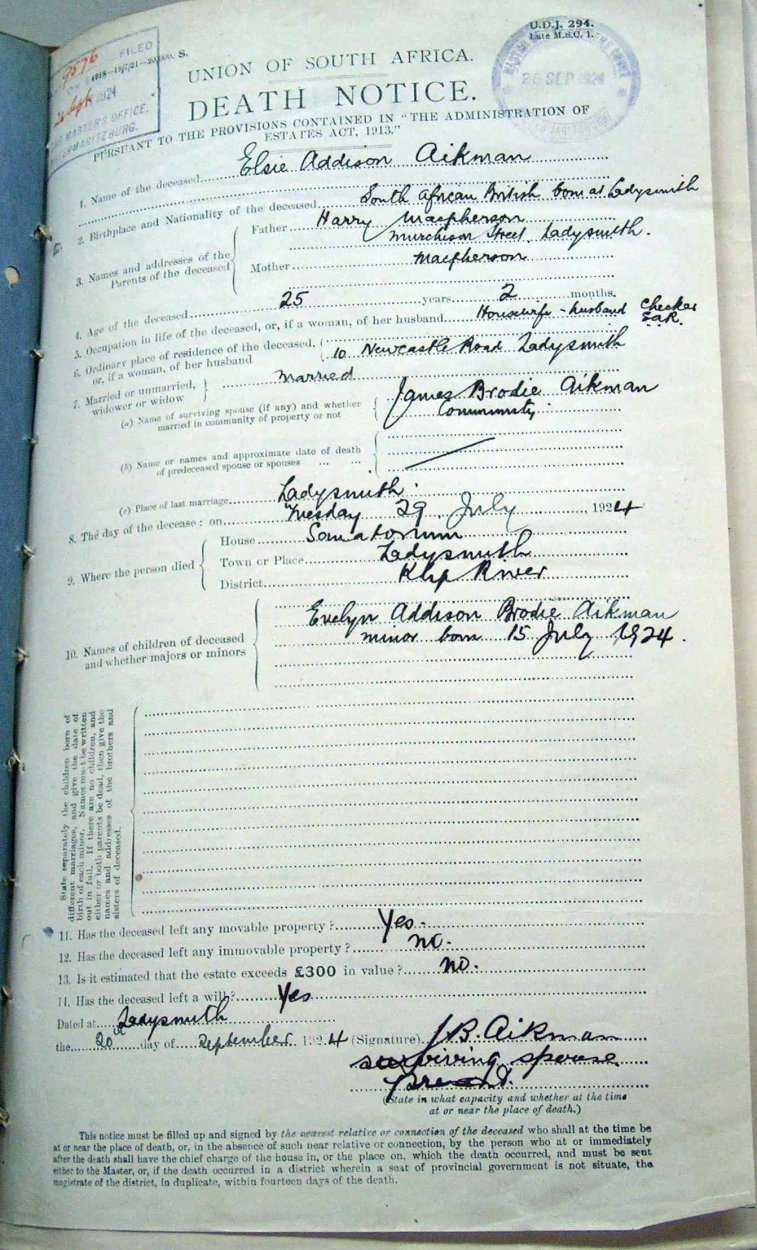 U.D.J. 294.
Late M.S.C. 1.
9576
FILED
1918—12/7/21—20,000. S.
26 Sept 1924
THE MASTER'S OFFICE,
PIETERMARITZBURG.
26 SEP 1924
UNION OF SOUTH AFRICA.
DEATH NOTICE.
PURSUANT TO THE PROVISIONS CONTAINED IN "THE ADMINISTRATION OF
ESTATES ACT, 1913."
1. Name of the deceased Elsie Addison Aikman
2. Birthplace and Nationality of the deceased South African British born at Ladysmith
3. Names and addresses of the Parents of the deceased
Father Harry Macpherson
Murchison Street, Ladysmith.
Mother Macpherson
4. Age of the deceased 25 years 2 months.
5. Occupation in life of the deceased, or, if a woman, of her husband Housewife - husband Checker SAR.
6. Ordinary place of residence of the deceased, or, if a woman, of her husband 10 Newcastle Road Ladysmith
7. Married or unmarried, widower or widow Married
(a) Name of surviving spouse (if any) and whether married in community of property or not
James Brodie Aikman
Community.
(b) Name or names and approximate date of death of predeceased spouse or spouses
(c) Place of last marriage Ladysmith.
8. The day of the decease: on Tuesday 29 July, 1924
9. Where the person died
House Sanatorium
Town or Place Ladysmith
District Klip River
10. Names of children of deceased and whether majors or minors
Evelyn Addison Brodie Aikman
minor born 15 July 1924.
State separately the children born of
different marriages, and give the date of
birth of each minor. Names must be written
out in full. If there are no children, and
either or both parents be dead, then give the
names and addresses of the brothers and
sisters of deceased.
11. Has the deceased left any movable property? Yes.
12. Has the deceased left any immovable property? no.
13. Is it estimated that the estate exceeds £300 in value? no.
14. Has the deceased left a will? Yes
Dated at Ladysmith
the 20 day of September 1924 (Signature) J.B. Aikman
surviving spouse
Present.
(State in what capacity and whether at the time
at or near the place of death.)
This notice must be filled up and signed by the nearest relative or connection of the deceased who shall at the time be
at or near the place of death, or, in the absence of such near relative or connection, by the person who at or immediately
after the death shall have the chief charge of the house in, or the place on, which the death occurred, and must be sent
either to the Master, or, if the death occurred in a district wherein a seat of provincial government is not situate, the
magistrate of the district, in duplicate, within fourteen days of the death.